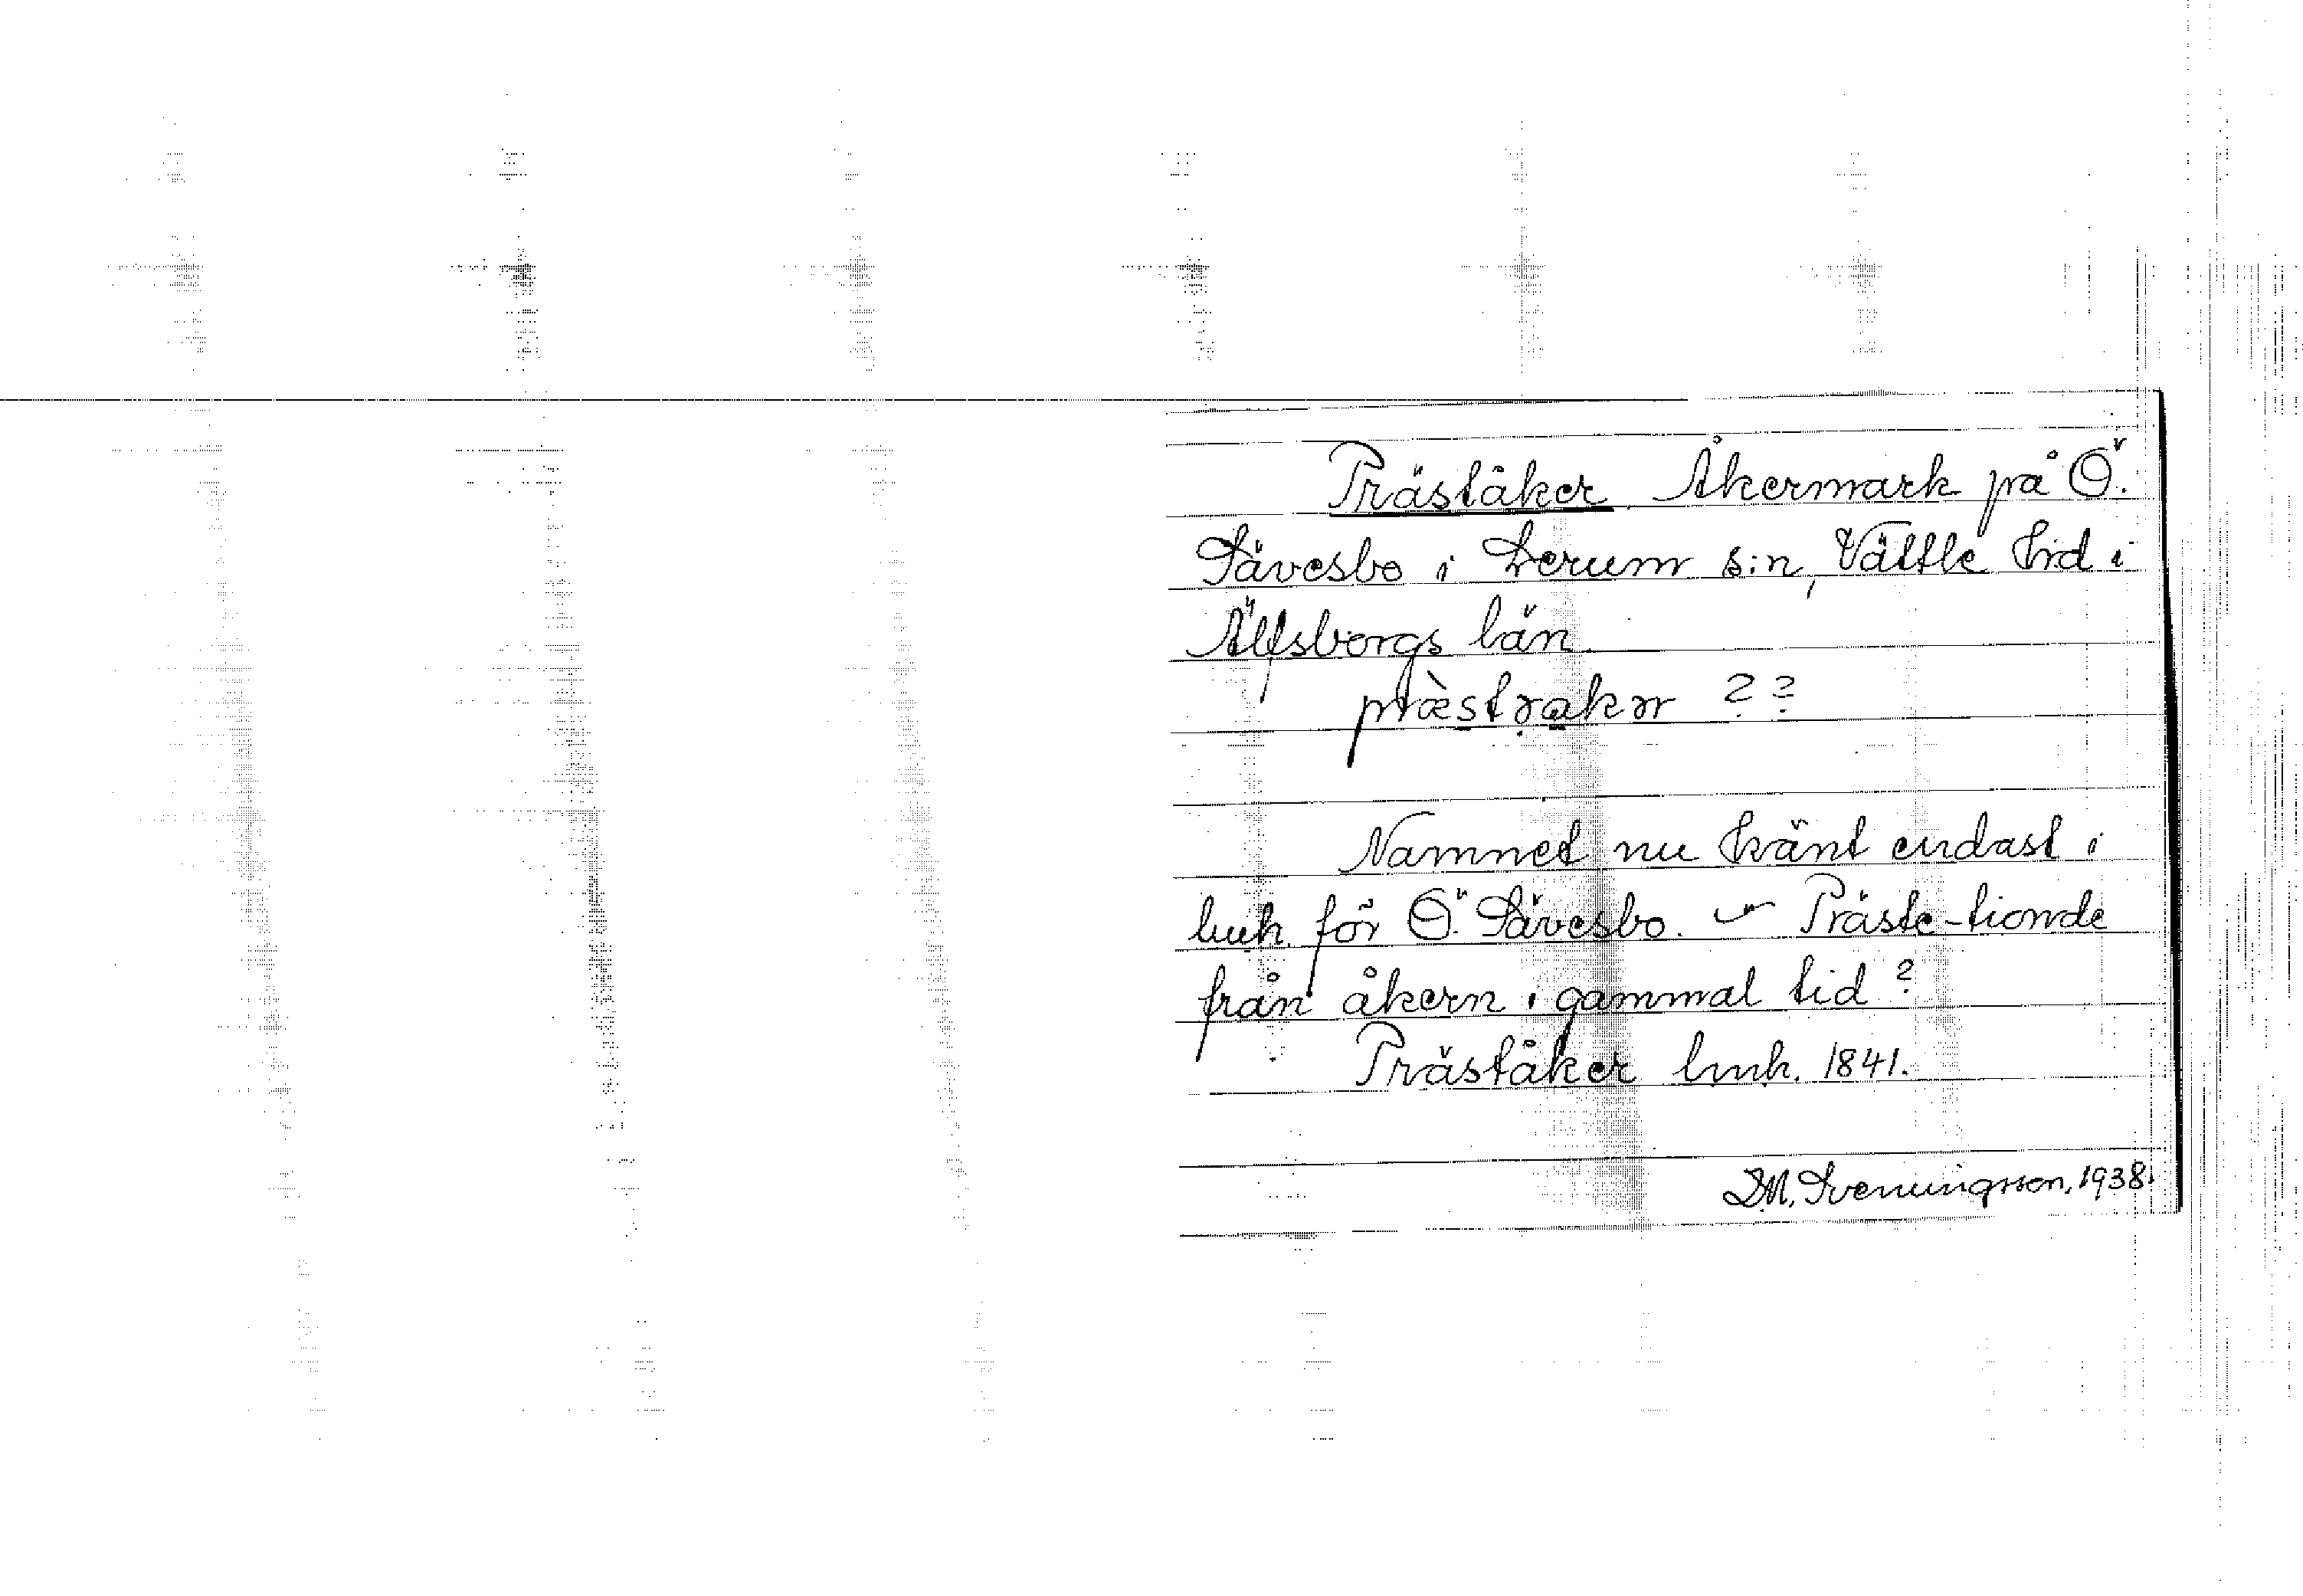 Präståker Åkermark på Ö.
Sävesbo i Lerum s:n, Vättle hd i
Älfsborgs län.
Namnet nu känt endast i
lmh. för Ö. Sävesbo. Präste-tionde
från åkern i gammal tid?
Präståker lmh. 1841.
D.M. Svenningsson, 1938.